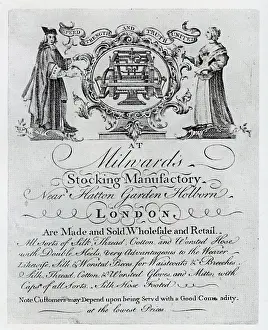 SPEED STRENGTH AND TRUTH UNITED
AT
Milwards
Stocking Manufactory.
Near Hatton Garden Holborn
LONDON,
Are Made and Sold Wholesale and Retail.
All Sorts of Silk, Thread, Cotton, and Worsted Hose
with Double Heels, Very Advantageous to the Wearer
Likewise, Silk & Worsted Pieces for Waistcoats & Breeches
Silk, Thread, Cotton, & Worsted Gloves and Mitts, with
Caps of all Sorts. Silk Hose Footed
Note Customers may Depend upon being Serv'd with a Good Commodity.
at the lowest Prices.